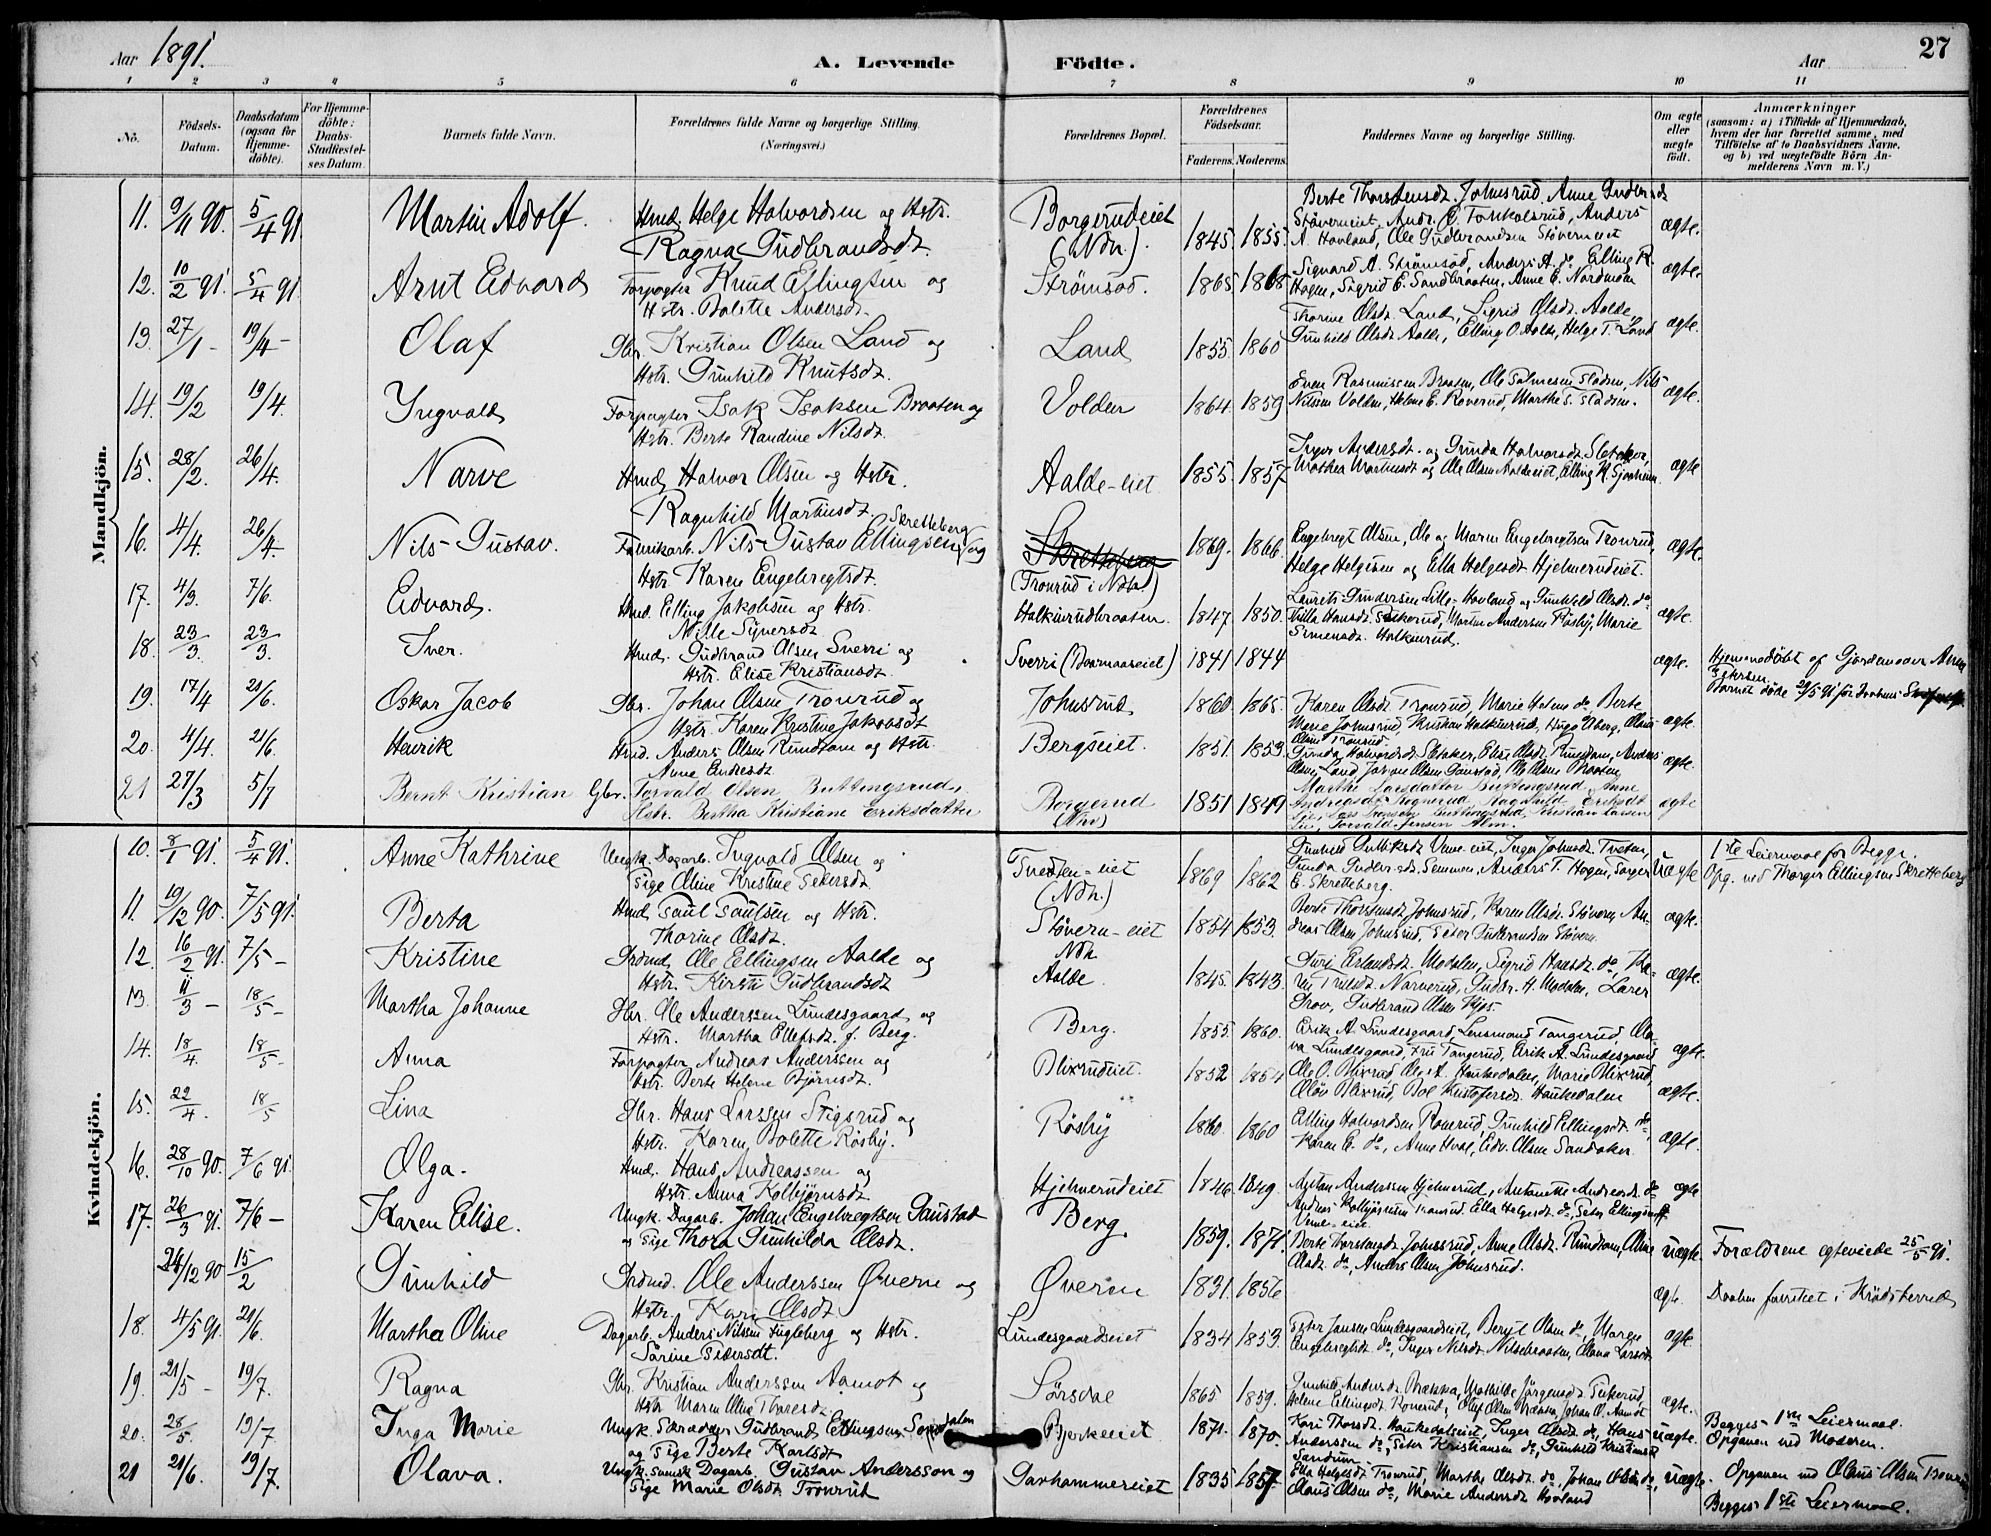 Aar 1891.
A. Levende Födte.
Aar
27
1 2 3 4 5 6 7 8 9 10 11
No.
Födsels-Datum.
Daabsdatum (ogsaa for Hjemmedöbte).
For Hjemmedöbte: Daabs-Stadfæstelses Datum.
Barnets fulde Navn.
Forældrenes fulde Navne og borgerlige Stilling.
(Næringsvei.)
Forældrenes Bopæl.
Forældrenes Födselsaar.
Faderens. Moderens.
Faddernes Navne og borgerlige Stilling.
Om ægte eller uægte födt.
Anmærkninger
(saasom: a) i Tilfælde af Hjemmedaab, hvem der har forrettet samme, med Tilföielse af to Daabsvidners Navne, og b) ved uægtefödte Börn Anmelderens Navn m. V.)
Mandkjön.
11. 9/11 90. 5/4 91. Martin Adolf. Hmd. Helge Halvordsen og Hstr. Ragna Gudbrandsdt. Borgerudeiet (Ndr.). 1845. 1855. Berte Thorstensdt. Johnsrud, Anne Gudbrsdt Stöverneiet, Andr. O. Tonkolsrud, Anders A. Hovland, Ole Gudbrandsen Stöverneiet ægte.
12. 10/2 91. 5/4 91. Arnt Edvard Forpagter Knud Ellingsen og Hstr. Bolette Andersdt. Strömsod. 1865 1868 Sigvard A. Strömsod, Anders A. do, Elling K. Hagen, Sigrid E. Sandbraaten, Anne E. Nordmoen ægte.
13. 27/1 - 19/4 - Olaf Gbr. Kristian Olsen Land og Hstr. Gunhild Knutsdt. Land 1855. 1860 Thorine Olsdt. Land, Sigrid Olsdt. Aalde, Gunhild Olsdt. Aalde, Elling O. Aalde, Helge T. Land ægte.
14. 19/2 19/4. Yngvald Forpagter Isak Isaksen Braaten og Hstr. Berte Randine Nilsdt. Volden 1864. 1859 Even Rasmussen Braaten, Ole Fladsen, Nils Nilssen Volden, Helene E. Roverud, Marthe S. Fladsen. ægte.
15. 28/2. 26/4. Narve Hmd. Halvor Olsen og Hstr. Ragnhild Martinsdt. Aalde-eiet 1855. 1857 Inger Andersdt. og Gunda Halvorsdt. Sletaker, Mathea Martinsdt og Ole Olsen Aaldeeiet, Elling K. ægte
16. 4/4. 26/4. Nils Gustav. Fabrikarb. Nils Gustav Ellingsen Skretteberg og Hstr Karen Engebregtsdt. (Tronrud i Ndr.) 1869. 1866. Engebregt Olsen, Ole og Maren Engebregtsen Tronrud, Helge Helgesen og Ella Helgesdt Hjelmerudeiet. ægte.
17. 4/3. 7/6. Edvard. Hmd. Elling Jakobsen og Hstr. Nille Syversdt Halkinrudbraaten. 1847. 1850. Laurits Gundersen Lille-Hovland og Gunhild Olsdt. do Milla Hansdt. Martin Andersen Rösby, Marie Simensdt. Halkinrud. ægte.
18. 23/3. 23/3. Iver. Hmd. Gudbrand Olsen Sverri og Hstr. Elise Kristiansdt. Sverri 1841 1844 ægte. Hjemmedöbt af Gjordemoer Anne Barnet döde 28/5 91 för
19. 17/4 21/6. Oskar Jacob Gbr. Johan Olsen Tronrud og Hstr. Karen Kristine Jakobsdt Johnsrud 1860. 1865. Karen Olsdt. Tronrud, Marie Helene do, Berte Marie Johnsrud, Kristian Halkinrud, Olaus Olsen Tronrud. ægte.
20. 4/4. 21/6. Henrik Hmd. Anders Olsen Rundtom og Hstr. Anne Endresdt Bergseiet. 1851. 1853. Gunda Halvorsdt. Sletaker, Elise Olsdt. Rundtom, Anders Olsen Land, Johan Olsen Gaustad, Ole Olsen Braaten ægte.
21 27/3 5/7 Bernt Kristian Gbr. Torvald Olsen Buttingsrud, Hstr. Bertha Kristiane Eriksdatter Borgerud (Nrd) 1851 1849 Marthe Larsdatter Buttingsrud, Anne Andreasdt. Ragnhild Eriksdt Buttingsrud, Kristian Larsen Torvald Jensen Alm. ægte
Kvindekjön.
10. 8/1 91. 5/4 91. Anne Kathrine Ungk. Dagarb. Ingvald Olsen og Pige Oline Kristine Pedersdt. Tveten-eiet (Ndr.) 1869 1862 Gunhild Gulliksdt. Veme-eiet, Inger Johnsdt. Tveten, Gunda Gudbr.sdt. Semmen, Anders T. Hagen, Torger E. Skretteberg. uægte 1ste Leiermaal for Begge. Opg. ved Thorger Ellingsen Skretteberg
11. 19/12 90. 7/5 91. Berta Hmd. Paul Paulsen og Hstr. Thorine Olsdt. Stövern-eiet Ndr. 1854 1853. Berte Thorstensdt Johnsrud, Karen Olsdt. Stövern, Andreas Olsen Johnsrud, Peter Gudbrandsen Stövern. ægte.
12. 16/2 91. 7/5 - Kristine Grdmd. Ole Ellingsen Aalde og Hstr. Kirsti Gudbrandsdt Aalde 1845. 1843. Guri Erlandsdt. Modalen, Sigrid Hansdt. do, Narverud, Gudbr. H. Modalen, Grov, Gudbrand Olsen ægte.
13. 11/3 - 18/5 - Martha Johanne Gbr. Ole Anderssen Lindesgaard og Hstr. Martha Ellefsdt. f. Berg. Berg. 1855. 1860. Erik A. Lindesgaard, Lensmand Tangerud, Olava Lindesgaard, Fru Tangerud, Erik A. Lindesgaard ægte.
14. 18/4 18/5 - Anna Forpagter Andreas Anderssen og Hstr. Berte Helene Bjørnsdt. Blixrudeiet. 1852 1854 Ole O. Blixrud, Ole A. Haukedalen, Marie Blixrud, Oløv Blixrud, Boel Kristofersdt. Haukedalen ægte.
15. 22/4. 18/5 Lina Gbr. Hans Larssen Stigsrud og Hstr. Karen Bolette Rösby. Rösby 1860. 1860 Elling Halvordsen Roverud, Gunhild Ellingsdt. do, Karen E. do, Anne Hval, Edv. Olsen Sandaker. ægte.
16. 28/10 90. 7/6 91. Olga. Hmd. Hans Andreassen og Hstr. Anna Kolbjörnsdt Hjelmerudeiet 1846. 1849. Anton Anderssen Hjelmerud, Antonette Andreasdt. do Andreas Kolbjörnsen Tronrud, Ella Helgesdt. do, Peter Ellingsen Veme-eiet. ægte
17. 26/3 91. 7/6 - Karen Elise. Ungk. Dagarb. Johan Engebregtsen Gaustad og Pige Thora Gunhilda Olsdt. Berg. 1859. 1871. Berte Thorstensdt. Johnsrud, Anne Olsdt. Rundtom, Oline Olsdt. do, Anders Olsen Johnsrud. uægte. Forældrene egteviede 25/5 91.
24/12 90 15/2 Gunhild Grdmd. Ole Anderssen Øvern og Hstr. Kari Olsdt. Øvern 1831. 1856 ægte. Daaben forrettet i Krödsherred
18. 4/5 91. 21/6. Martha Oline Dagarb. Anders Nilssen Fugleberg og Hstr. Sörine Pedersdt. Lindesgaardseiet 1834 1853. Peter Jansen Lindesgaardseiet, Beryt Olsen do, Maren Engebregtsdt. do, Inger Nilsdt. Nilsebraaten, Olava Larsdt. ægte
19. 21/5 - 19/7. Ragna Gbr. Kristian Anderssen Aamot og Hstr. Maren Oline Thoresdt. Sörsdal 1865 1859. Gunhild Andersdt. Bækka, Mathilde Jörgensdt. Helene Ellingsdt. Roverud, Olaf Olsen Johan O. Aamot ægte.
20. 28/5. 19/7. Inga Marie Ungk. Skrædder Gudbrand Ellingsen og Pige Berte Karlsdt Bjerkeeiet 1871. 1870. Kari Thorsdt. Haukedalseiet, Inger Olsdt. do, Hans Anderssen do, Peter Kristiansen do, Gunhild Kristiansdt Sandum uægte. Begges 1ste Leiermaal. Opgaven ved Moderen.
21 21/6. 19/7. Olava. Ungk. svensk Dagarb. Gustav Andersson og Pige Marie Olsdt. Tronrud Garhammereiet 1835 1857. Ella Helgesdt. Tronrud, Marthe Olsdt. do, Johan Olsen do, Olaus Olsen do, Marie Andersdt. Hovland uægte. Opgaven ved Olaus Olsen Tronrud Begges 1ste Leiermaal.